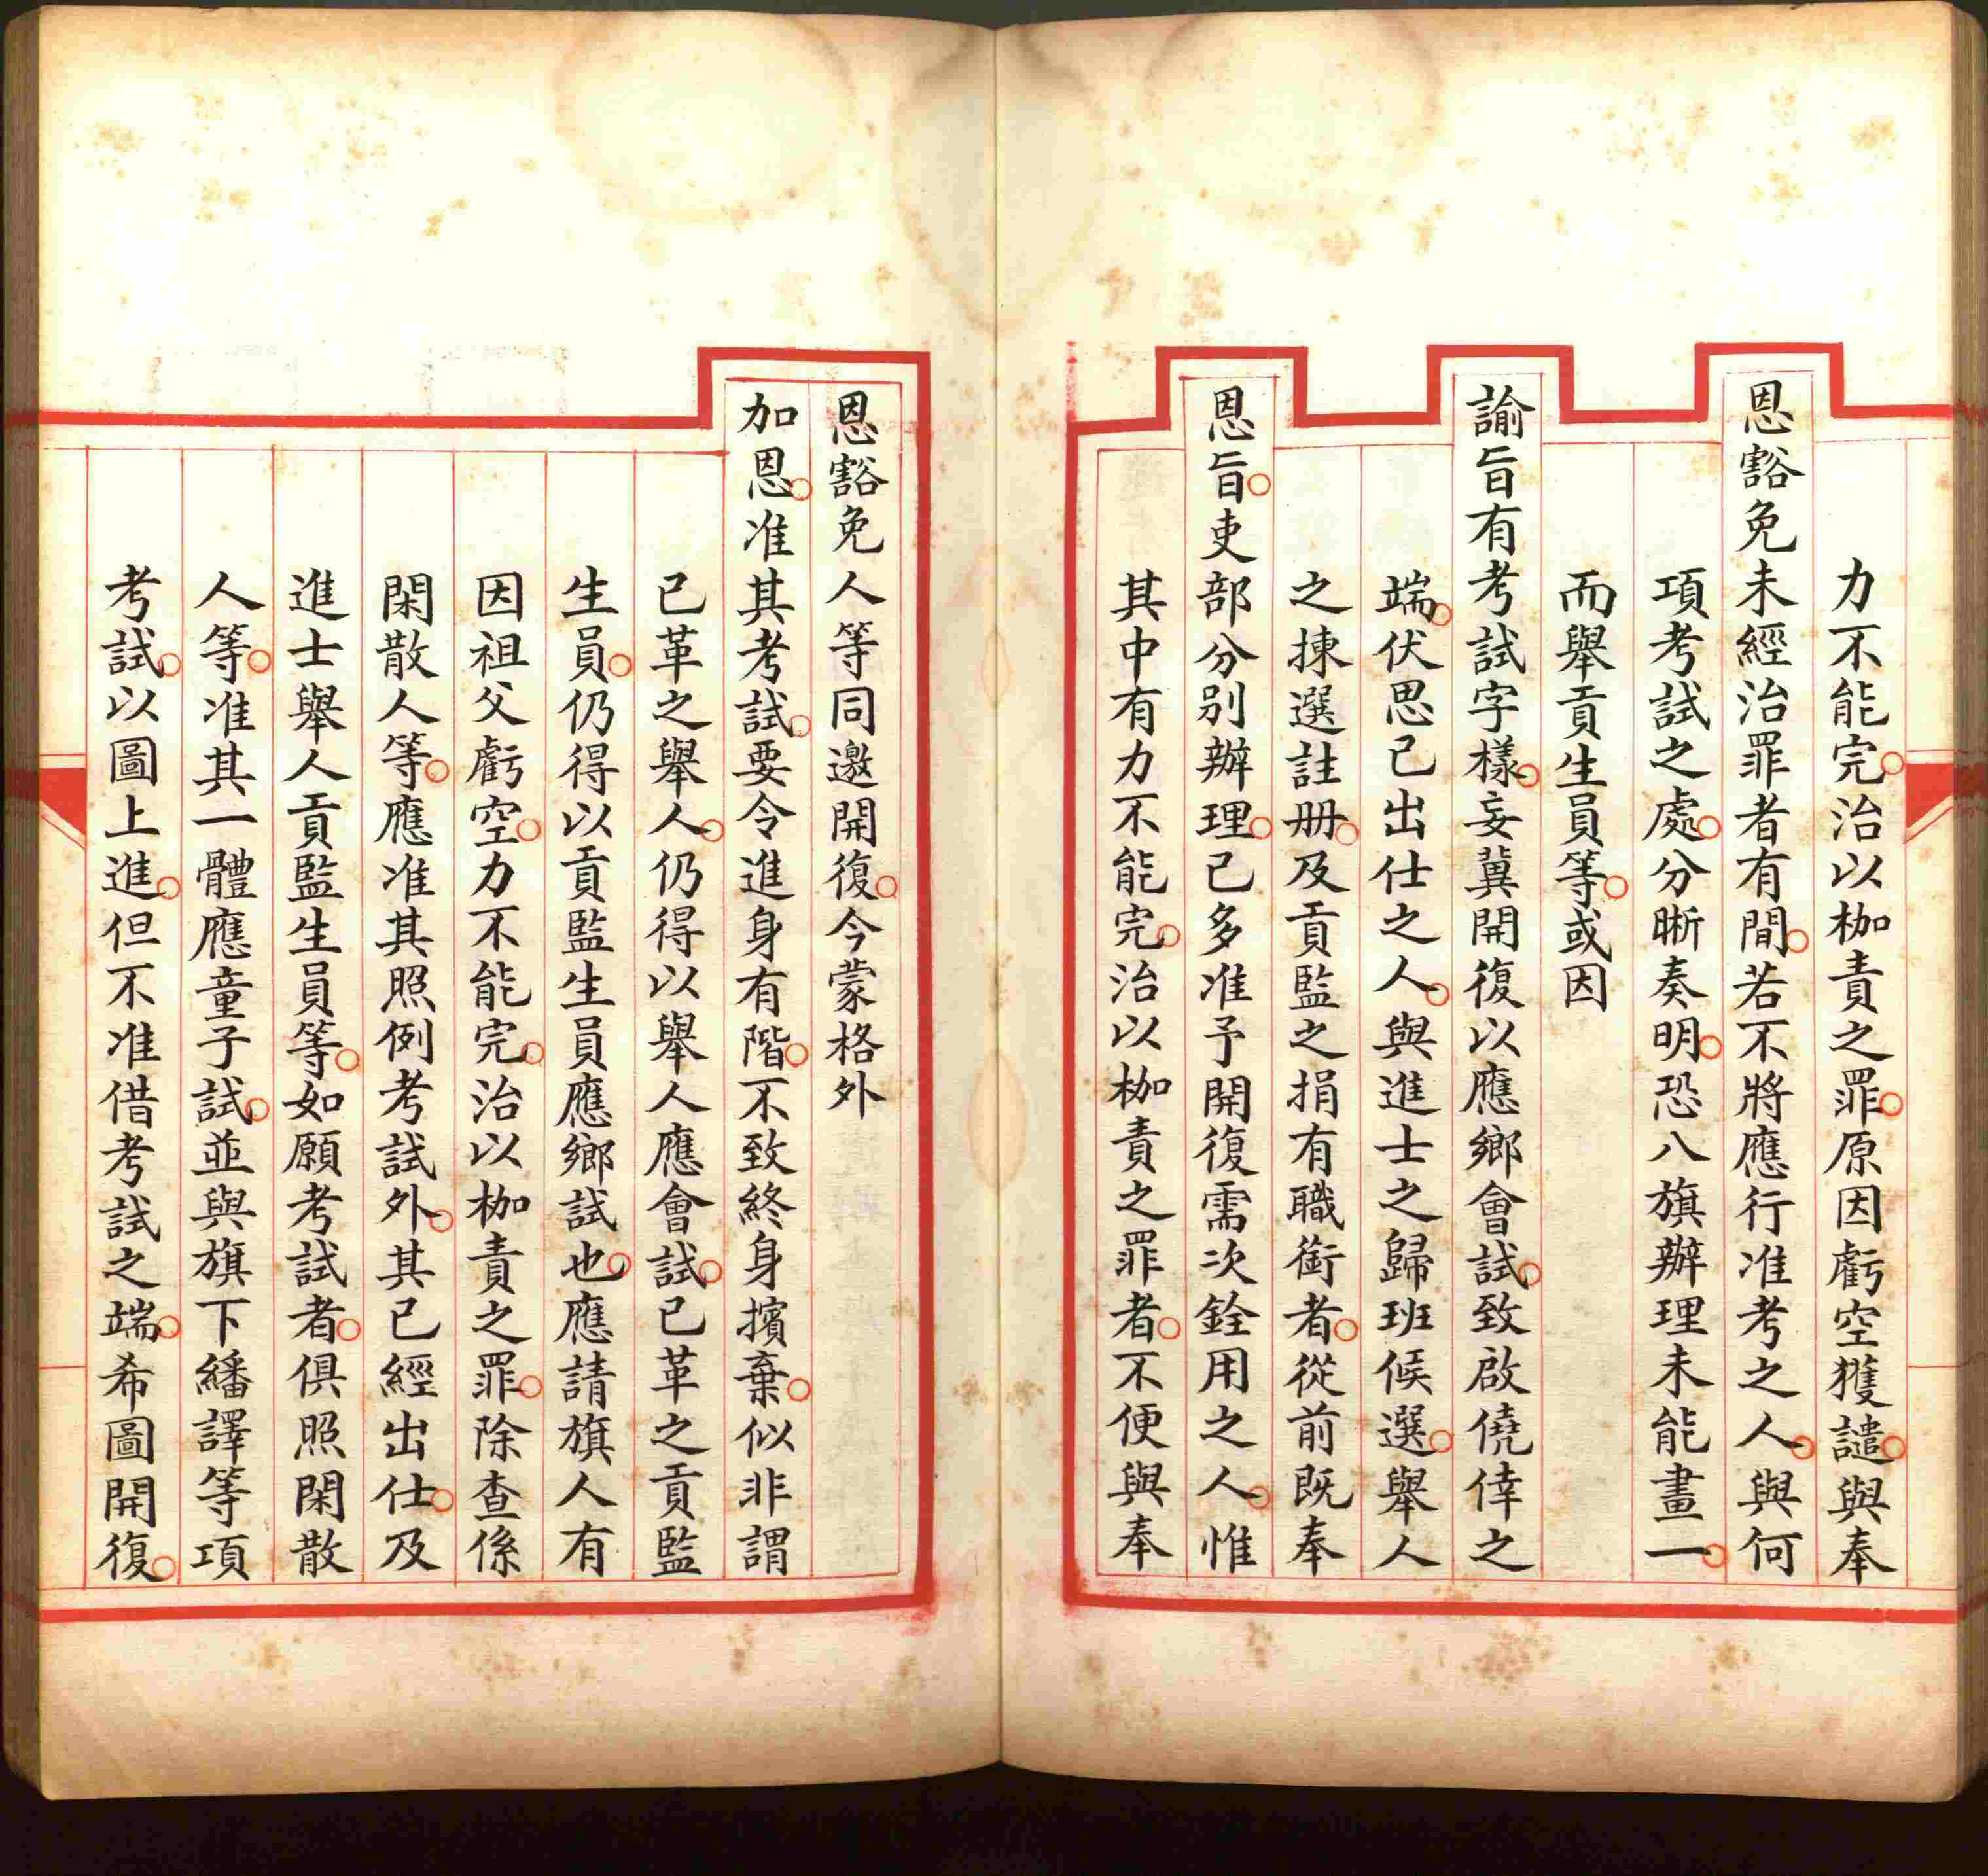 力不能完。治以枷責之罪。原因虧空獲譴。與奉
恩豁免未經治罪者有間。若不將應行准考之人。與何
項考試之處。分晰奏明。恐八旗辦理未能畫一。
而舉貢生員等。或因
諭旨有考試字樣。妄冀開復以應鄉會試。致啟僥倖之
端。伏思已出仕之人。與進士之歸班候選。舉人
之揀選註册。及貢監之捐有職銜者。從前既奉
恩旨。吏部分别辦理。已多准予開復需次銓用之人。惟
其中有力不能完。治以枷責之罪者。不便與奉
恩豁免人等同邀開復。今蒙格外
加恩。准其考試。要令進身有階。不致終身擯棄。似非謂
已革之舉人。仍得以舉人應會試。已革之貢監
生員。仍得以貢監生員應鄉試也。應請旗人有
因祖父虧空。力不能完。治以枷責之罪。除查係
閑散人等。應准其照例考試外。其已經出仕。及
進士舉人貢監生員等。如願考試者。俱照閑散
人等。准其一體應童子試。並與旗下繙譯等項
考試。以圖上進。但不准借考試之端。希圖開復。